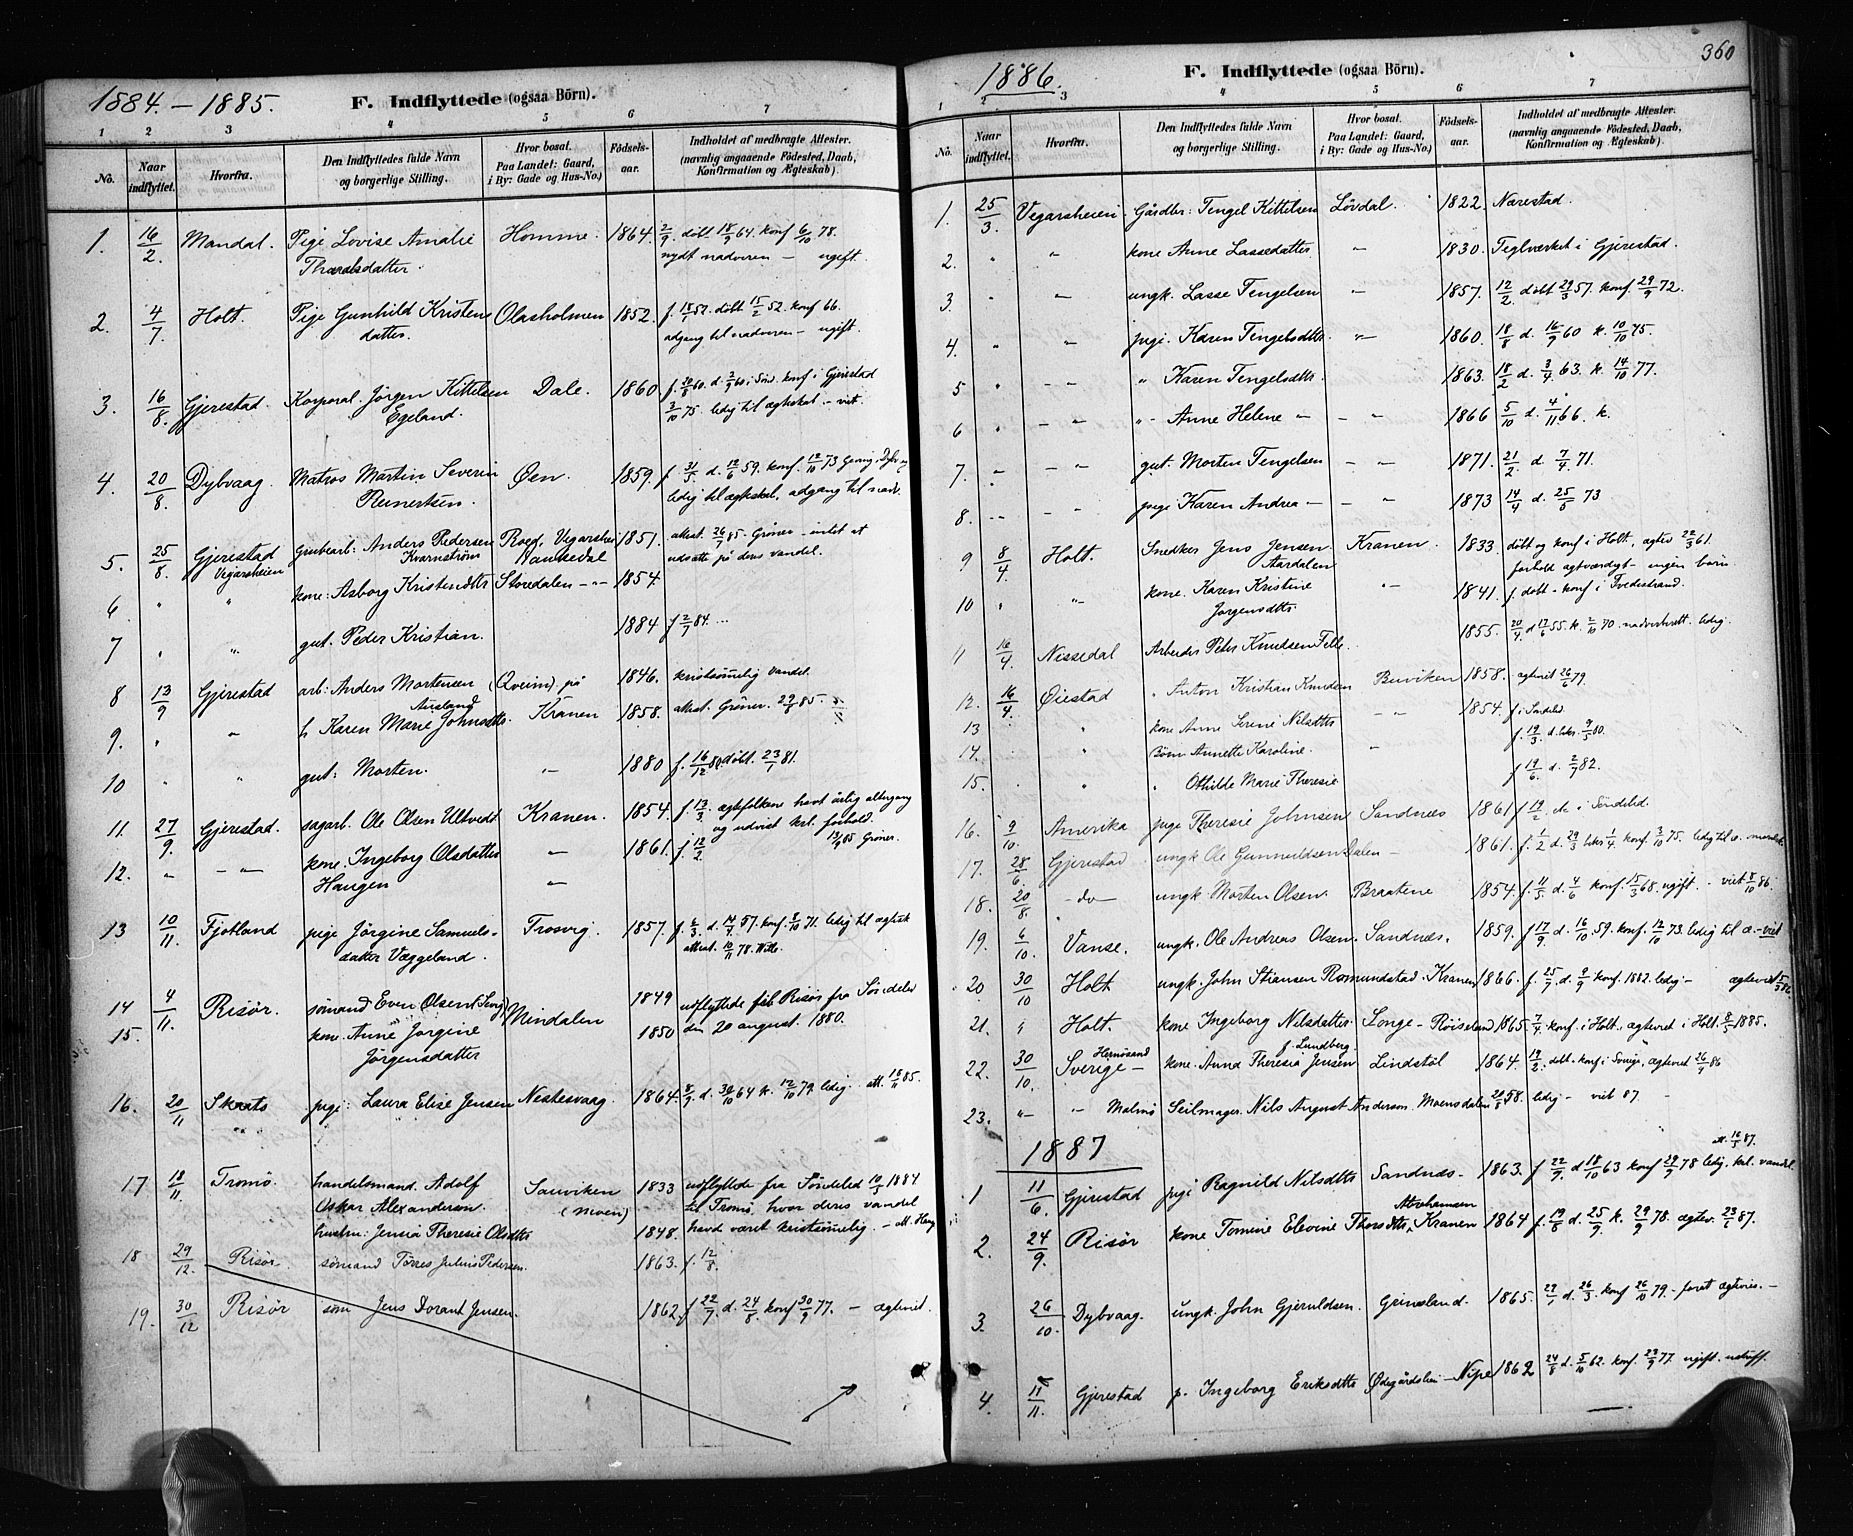 1884. - 1885.
F. Indflyttede (ogsaa Börn).
1 2 3 4 5 6 7
No. Naar indflyttet. Hvorfra. Den Indflyttedes fulde Navn og borgerlige Stilling. Hvor bosat. Paa Landet: Gaard, i By: Gade og Hus-No.) Födsels-aar. Indholdet af medbragte Attester. (navnlig angaaende Födested, Daab, Konfirmation og Ægteskab).
1. 16/2 Mandal. Pige Lovise Amalie Homme. 1864. 2/9. döbt 18/9 64. konf 6/10 78.
nydt nadveren — ugift.
2. 4/7 Holt. Pige Gunhild Kristens Olasholmen 1852. döbt 15/2 52. konf 66.
datter. adgang til nadveren — ugift.
3. 16/8. Gjerestad. Korporal. Jørgen Kittelsen Dale. 1860 konf i Gjerestad
Egeland. 3/10 75. ledig til ægteskab - vict.
4. 20/8. Dybvaag. Matros Martin Severin Øen. 1859. f 31/5. d. 12/6 59. konf. 12/10 73
Reinertsen. ledig til ægteskab, adgang til nadv.
5. 25/8. Gjerestad Grubearb: Anders Pedersen 1851. attest. 26/7 85 - Gröner - intet at
Vegarsheien Kvarnström udsætte på dens vandel.
6 " " kone: Asborg Kristensdtter Storedalen -"- 1854.
7 " " gut. Peder Kristian. 1884 f 2/7 84.
8 13/9 Gjerestad arb: Anders Mortensen (Qveim) på 1846. kristsömmelig vandel
Ausland
9. " " h Karen Marie Johnsdtter. Kranen 1858. attest. Gröner. 29/8 85.
10 " " gut: Morten. -"- 1880 f. 16/12 80. döbt. 23/1 81.
11. 27/9. Gjerestad. sagarb. Ole Olsen Ultvedt Kranen. 1854. f. 13/3. ægtefolkene havt årlig altergang
og udvist krl. forhold.
12. " -"- kone. Ingeborg Olsdatter -"- 1861. f. 12/2 13/9 85 Gröner.
Haugen -"-
13 10/11. Fjotland pige Jörgine Samuels- Trosvig. 1857. f. 6/3. d. 14/4. 57. konf. 8/10 71. ledig til ægtesk
datter Væggeland. attest. 10/11 78.
14 4/11. Risör. sömand Even Olsen 1849 udflyttede fil Risör fra Söndeled
15. kone. Anne Jörgine Mindalen 1850 den 20 august. 1880.
Jörgensdatter
16. 20/11 pige: Laura Elise Jensen Nestesvaag. 1864. 8/9. d. 30/10 64 k. 12/10 79. ledig. att. 18/11 85.
17 18/11. Tromö. handelsmand. Adolf Sauviken 1833 udflyttede fra Söndeled 10/3 1884
Oskar Alexandersen. (Moen) til Tromö, hvor deres vandel
hustru: Jensia Theresie Olsdtter 1848. havd været kristsömmelig. -
18 29/12. Risör. sömand Törres Julius Pedersen. 1863. f. 12/8.
19. 30/12 Risör söm Jens Dorant Jensen. 1862. f 22/7. d. 24/8. konf 30/9 77. — ægteviet.
1886.
F. Indflyttede (ogsaa Börn).
360
1 2 3 4 5 6 7
No. Naar indflyttet. Hvorfra. Den Indflyttedes fulde Navn og borgerlige Stilling. Hvor bosat. Paa Landet: Gaard, i By: Gade og Hus-No.) Födsels-aar. Indholdet af medbragte Attester. (navnlig angaaende Födested, Daab, Konfirmation og Ægteskab).
1. 25/3. Vegarsheien Gårdbr: Tengel Kittilsen Lövdal. 1822. Nærestad.
2. " " kone Anne Lassedatter -"- 1830. Teglværket i Gjerestad.
3. " " ungk. Lasse Tengelsen -"- 1857. 12/2. döbt 29/3 57. konf. 29/9 72.
4. " " pige. Karen Tengelsdtter. -"- 1860. 18/8 d. 16/9 60 k. 10/10 75.
5 " " Karen Tengelsdtter. 1863. 18/2 d. 3/4 63. k. 14/10 77.
6 " -"- "- Anne Helene "- -"- 1866 5/10 d. 4/11 66. k.
7. " -"- gut. Morten Tengelsen -"- 1871. 21/2 d. 7/4 71.
8. -"- -"- pige Karen Andrea — -"- 1873 14/4 d. 25/5 73
9 8/4. Holt. Snedker Jens Jensen Kranen. 1833. döbt og konf i Holt, agtev 22/3 61.
Stardalen forhold agtværdigt - ingen börn.
10 " -"- kone. Karen Kristine -"- 1841. f. döbt - konf i Tvedestrand.
Jörgensdtter.
11 16/4. Nissedal Arbeider Peter Knudsen 1855. 20/4. d 17/6 55. k. 2/10 70. nadverberett. ledig.
12. 16/4. Öiestad " Anton Kristian Knudsen Buviken 1858. agteviet 26/6 79.
13 " kone Anne Serine Nilsdtter -"- 1854. f i Söndeled.
14. " Börn Annette Karoline. -"- f. 19/3. d.
15. " " Othilde Marie Theresie f 19/6. d. 2/7 82.
16. 9/10. Amerika pige Theresie Johnsen Sandnæs 1861 f 19/2. i Söndeled.
17. 28/6 Gjerestad ungk Ole Gunnuldsen Dalen - 1861. f. 1/2 d. 29/3 konf. 3/10 75. ledig til
18. 20/8. -do- ungk Morten Olsen. Braatene 1854. f. 11/5. d. 4/6 konf. 15/3 68. ugift. - viet 8/10 86.
19. 6/10. Vanse. ungk. Ole Andreas Olsen. Sandnæs. 1859. f 17/9. d. 16/10. 59. konf. 12/10 73. ledig til æ. - viet
20 30/10 Holt ungk. John Stiansen Romundstad. Kranen 1866. f. 25/7. d. 9/9 konf. 1882. ledig -
21. " Holt. kone Ingeborg Nilsdatter. Longe - Röiseland 1865 7/4. konf. i Holt., agteviet i Holt. 8/5 1885.
22. 30/10. Sverige - Hernösand kone. Anna Theresia Jensen f. Lundberg. Lindstöl 1864. 19/2. döbt. konf. i Sverige, agteviet 26/9 86
23. "- " Malmö Seilmager. Nils August Andersen. Moensdalen 58. ledig - viet 87.
1887
att. 16/5 87.
1 11/6. Gjerestad pige Ragnild Nilsdtter Sandnæs - 1863. f. 22/9. d 18/10 63 konf 29/9 78 ledig. krl. vandel.
2. 24/9. Risör kone Tomine Elevine Thorsdtter. Kranen 1864 f. 19/8 d. 25/9. k. 29/9 78. agtev. 23/1 87.
3. 26/10. Dybvaag. ungk. John Gjeruldsen. Grimsland. 1865. 29/1 d. 26/3. konf 26/10 79. -
4. 11/11. Gjerestad p. Ingeborg Eriksdtter Ödegårdslien - Nipe 1862 24/8 d. 5/10 62. konf. 23/9 77. ugift.